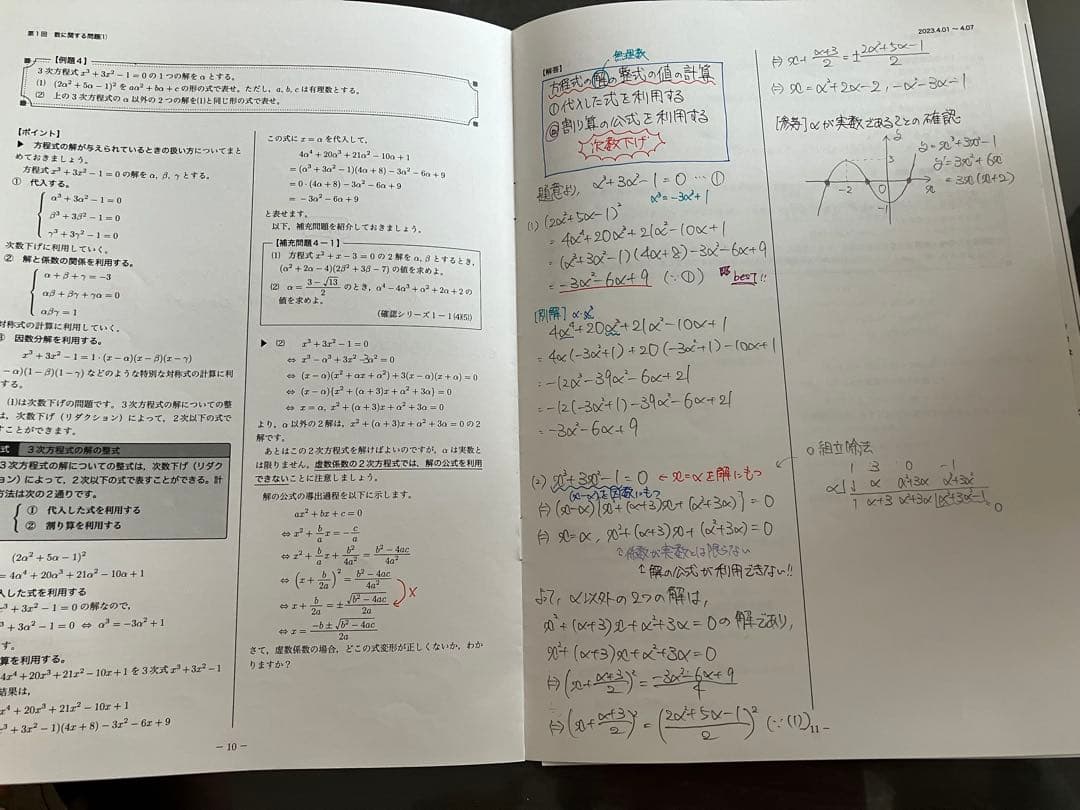 第1回 数に関する問題(1)
【例題4】
3次方程式 x³+3x²−1=0 の1つの解をαとする。
(1) (2α²+5α−1)² を aα²+bα+c の形の式で表せ。ただし, a, b, c は有理数とする。
(2) 上の3次方程式のα以外の2つの解を(1)と同じ形の式で表せ。
【ポイント】
▶ 方程式の解が与えられているときの扱い方についてまと
めておきましょう。
方程式 x³+3x²−1=0 の解を α, β, γ とする。
① 代入する。
α³+3α²−1=0
β³+3β²−1=0
γ³+3γ²−1=0
次数下げに利用していく。
② 解と係数の関係を利用する。
α+β+γ=−3
αβ+βγ+γα=0
αβγ=1
対称式の計算に利用していく。
因数分解を利用する。
x³+3x²−1=1·(x−α)(x−β)(x−γ)
−α)(1−β)(1−γ) などのような特別な対称式の計算に利
する。
(1)は次数下げの問題です。3次方程式の解についての整
は, 次数下げ(リダクション)によって, 2次以下の式で
すことができます。
式 3次方程式の解の整式
3次方程式の解についての整式は, 次数下げ(リダク
ション)によって, 2次以下の式で表すことができる。計
方法は次の2通りです。
① 代入した式を利用する
② 割り算を利用する
(2α²+5α−1)²
=4α⁴+20α³+21α²−10α+1
入した式を利用する
³+3x²−1=0 の解なので,
+3α²−1=0 ⇔ α³=−3α²+1
す。
算を利用する。
4x⁴+20x³+21x²−10x+1 を3次式 x³+3x²−1
結果は,
x⁴+20x³+21x²−10x+1
x³+3x²−1)(4x+8)−3x²−6x+9
この式に x=α を代入して,
4α⁴+20α³+21α²−10α+1
=(α³+3α²−1)(4α+8)−3α²−6α+9
=0·(4α+8)−3α²−6α+9
=−3α²−6α+9
と表せます。
以下, 補充問題を紹介しておきましょう。
【補充問題4−1】
(1) 方程式 x²+x−3=0 の2解を α, β とするとき,
(α²+2α−4)(2β²+3β−7) の値を求めよ。
(2) α=(3−√13)/2 のとき, α⁴−4α³+α²+2α+2 の
値を求めよ。
(確認シリーズ1−1(4)(5))
▶ (2) x³+3x²−1=0
⇔ x³−α³+3x²−3α²=0
⇔ (x−α)(x²+αx+α²)+3(x−α)(x+α)=0
⇔ (x−α){x²+(α+3)x+α²+3α}=0
⇔ x=α, x²+(α+3)x+α²+3α=0
より, α以外の2解は, x²+(α+3)x+α²+3α=0 の2
解です。
あとはこの2次方程式を解けばよいのですが, αは実数と
は限りません。虚数係数の2次方程式では, 解の公式を利用
できないことに注意しましょう。
解の公式の導出過程を以下に示します。
ax²+bx+c=0
⇔ x²+(b/a)x=−c/a
⇔ x²+(b/a)x+b²/4a²=(b²−4ac)/4a²
⇔ (x+b/2a)²=(b²−4ac)/4a²
⇔ x+b/2a=±√(b²−4ac)/2a
×
⇔ x=(−b±√(b²−4ac))/2a
さて, 虚数係数の場合, どこの式変形が正しくないか, わか
りますか?
− 10 −
2023.4.01 〜 4.07
【解答】
無理数
方程式の解の整式の値の計算
①代入した式を利用する
②割り算の公式を利用する
次数下げ
題意より, α³+3α²−1=0 … ①
α³=−3α²+1
(1) (2α²+5α−1)²
=4α⁴+20α³+21α²−10α+1
=(α³+3α²−1)(4α+8)−3α²−6α+9
=−3α²−6α+9 (∵①) best!!
[別解] α·α³
4α⁴+20α³+21α²−10α+1
=4α(−3α²+1)+20(−3α²+1)−10α+1
=−12α³−39α²−6α+21
=−12(−3α²+1)−39α²−6α+21
=−3α²−6α+9
(2) x³+3x²−1=0 ←x=αを解にもつ
(x−α)を因数にもつ
⇔(x−α){x²+(α+3)x+(α²+3α)}=0
⇔ x=α, x²+(α+3)x+(α²+3α)=0
↑係数が実数とは限らない
↑解の公式が利用できない!!
よって, α以外の2つの解は,
x²+(α+3)x+α²+3α=0の解であり,
x²+(α+3)x+α²+3α=0
⇔(x+(α+3)/2)²=(−3α²−6α+9)/4
⇔(x+(α+3)/2)²=((2α²+5α−1)/2)² (∵(1))
⇔ x+(α+3)/2=±(2α²+5α−1)/2
⇔ x=α²+2α−2, −α²−3α−1
[参考] αが実数であることの確認
y
y=x³+3x²−1
y'=3x²+6x
=3x(x+2)
3
−2
0
x
−1
○組立除法
1 3 0 −1
α| ↓ α α²+3α α³+3α²
1 α+3 α²+3α |α³+3α²−1
=0
11 −